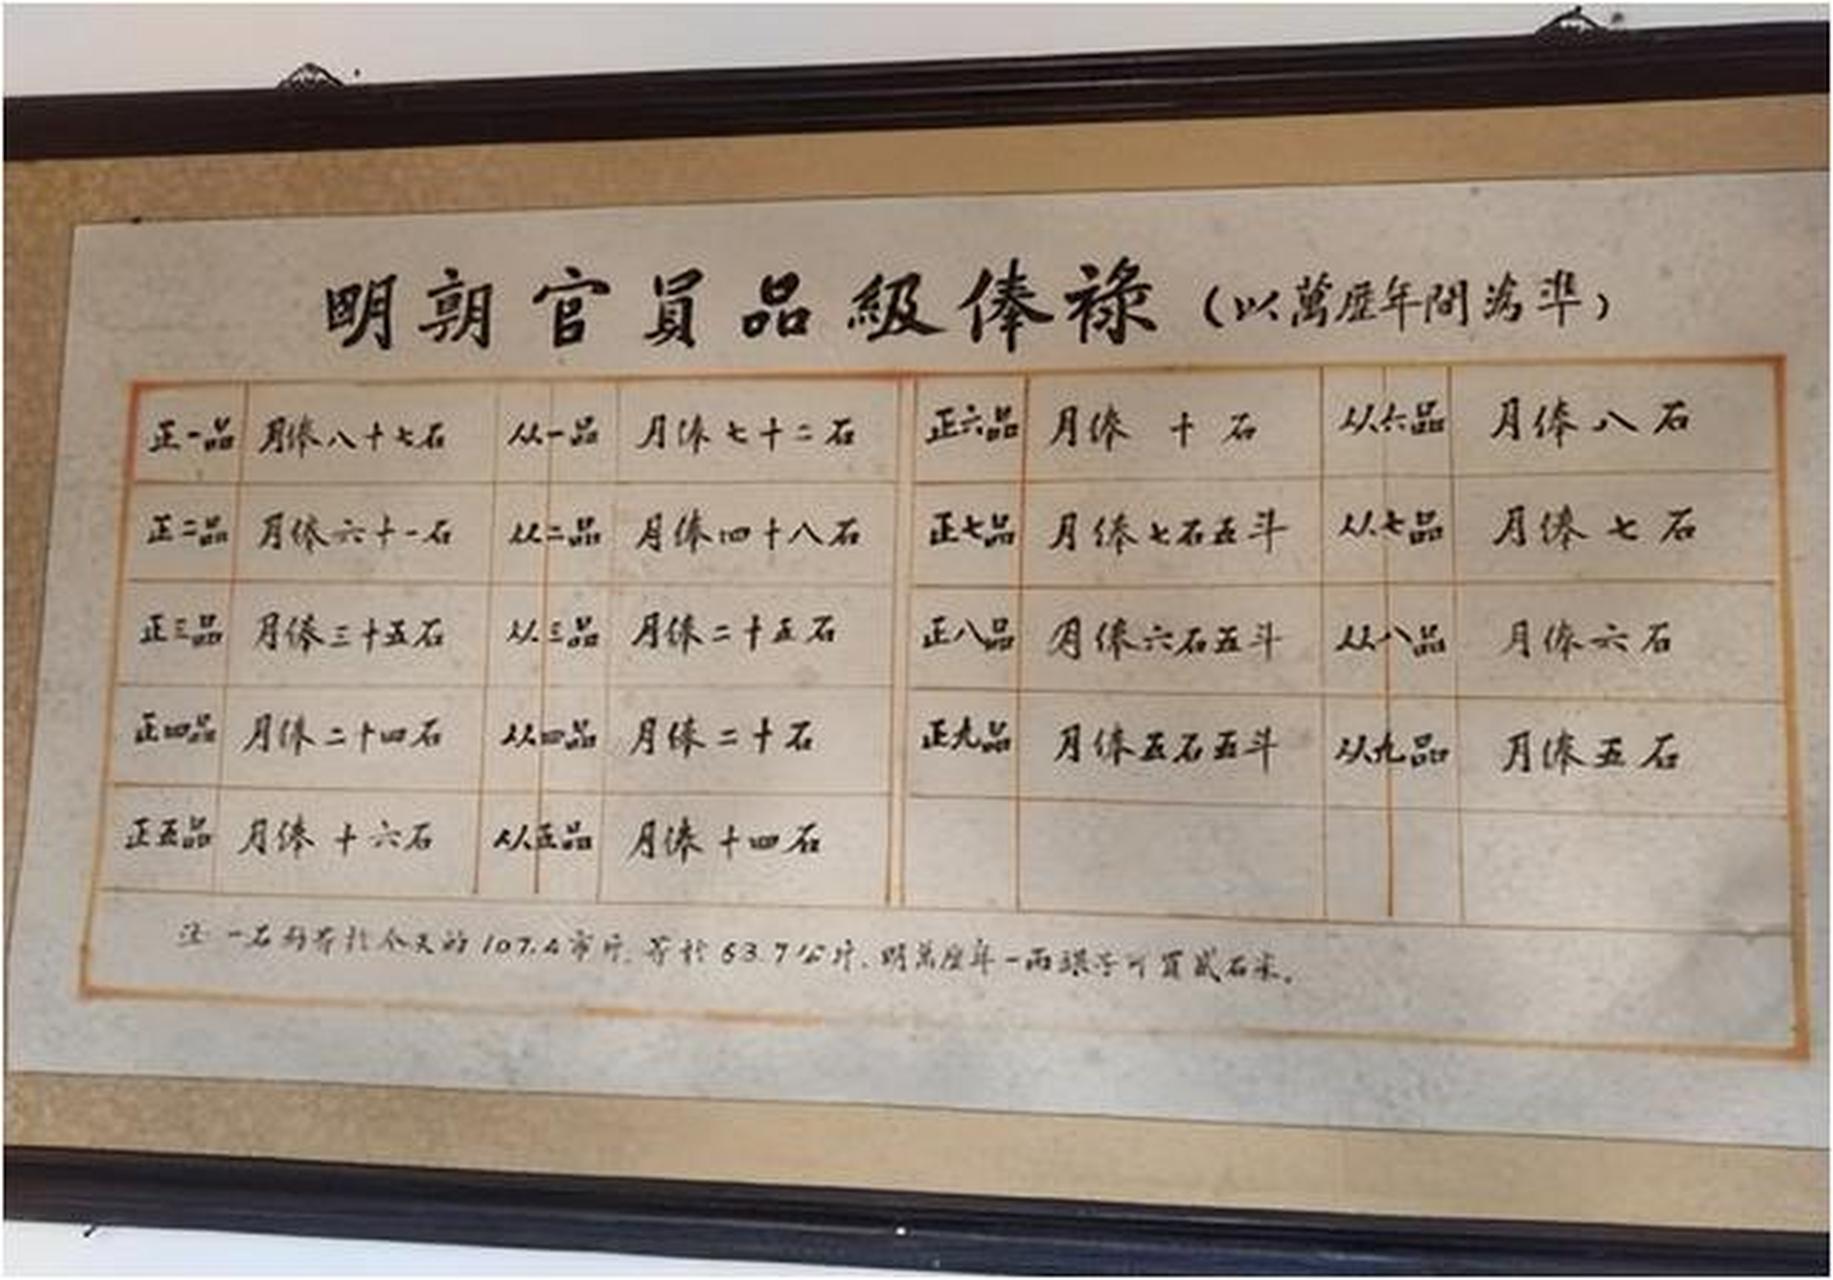 明朝官員品級俸祿（以萬歷年間為準）
正一品 月俸八十七石 从一品 月俸七十二石 正六品 月俸十石 从六品 月俸八石
正二品 月俸六十一石 从二品 月俸四十八石 正七品 月俸七石五斗 从七品 月俸七石
正三品 月俸三十五石 从三品 月俸二十五石 正八品 月俸六石五斗 从八品 月俸六石
正四品 月俸二十四石 从四品 月俸二十石 正九品 月俸五石五斗 从九品 月俸五石
正五品 月俸十六石 从五品 月俸十四石
注 一石約等於今天的107.4市斤.等於53.7公斤.明萬歷年一兩銀子可買貳石米.